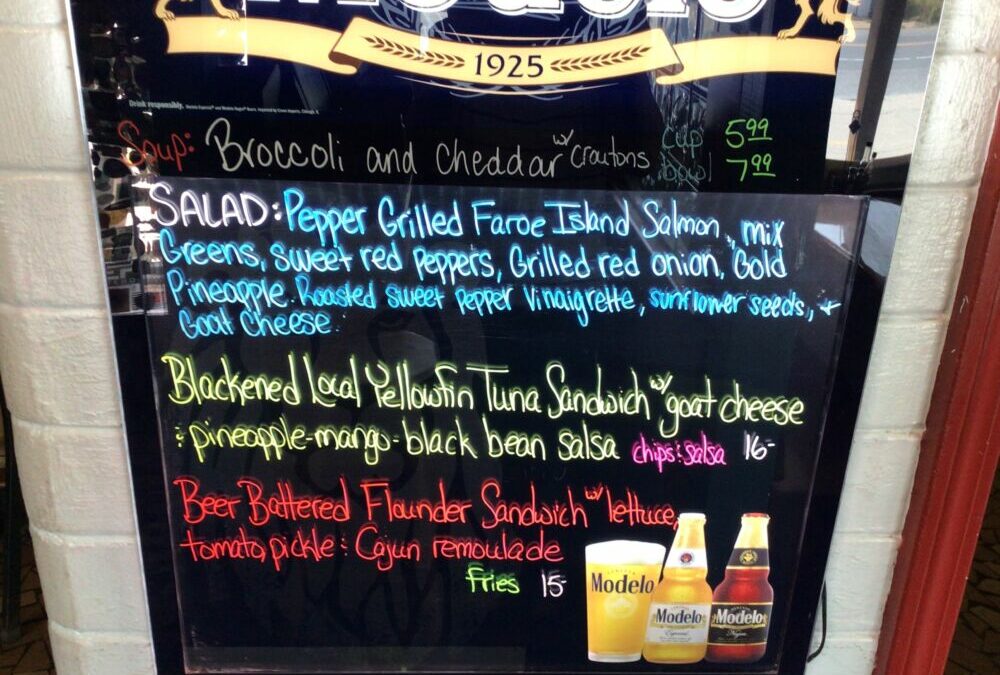 Modelo
1925
Drink responsibly.
Soup: Broccoli and cheddar w/ croutons cup 5.99
bowl 7.99
SALAD: Pepper Grilled Faroe Island Salmon, mix
Greens, sweet red peppers, Grilled red onion, Gold
Pineapple. Roasted sweet pepper vinaigrette, sunflower seeds, +
Goat Cheese.
Blackened Local Yellowfin Tuna Sandwich w/ goat cheese
: pineapple-mango-black bean salsa chips : salsa 16-
Beer Battered Flounder Sandwich w/ lettuce,
tomato, pickle : Cajun remoulade
fries 15-
Modelo
Modelo
Especial
Modelo
Negra